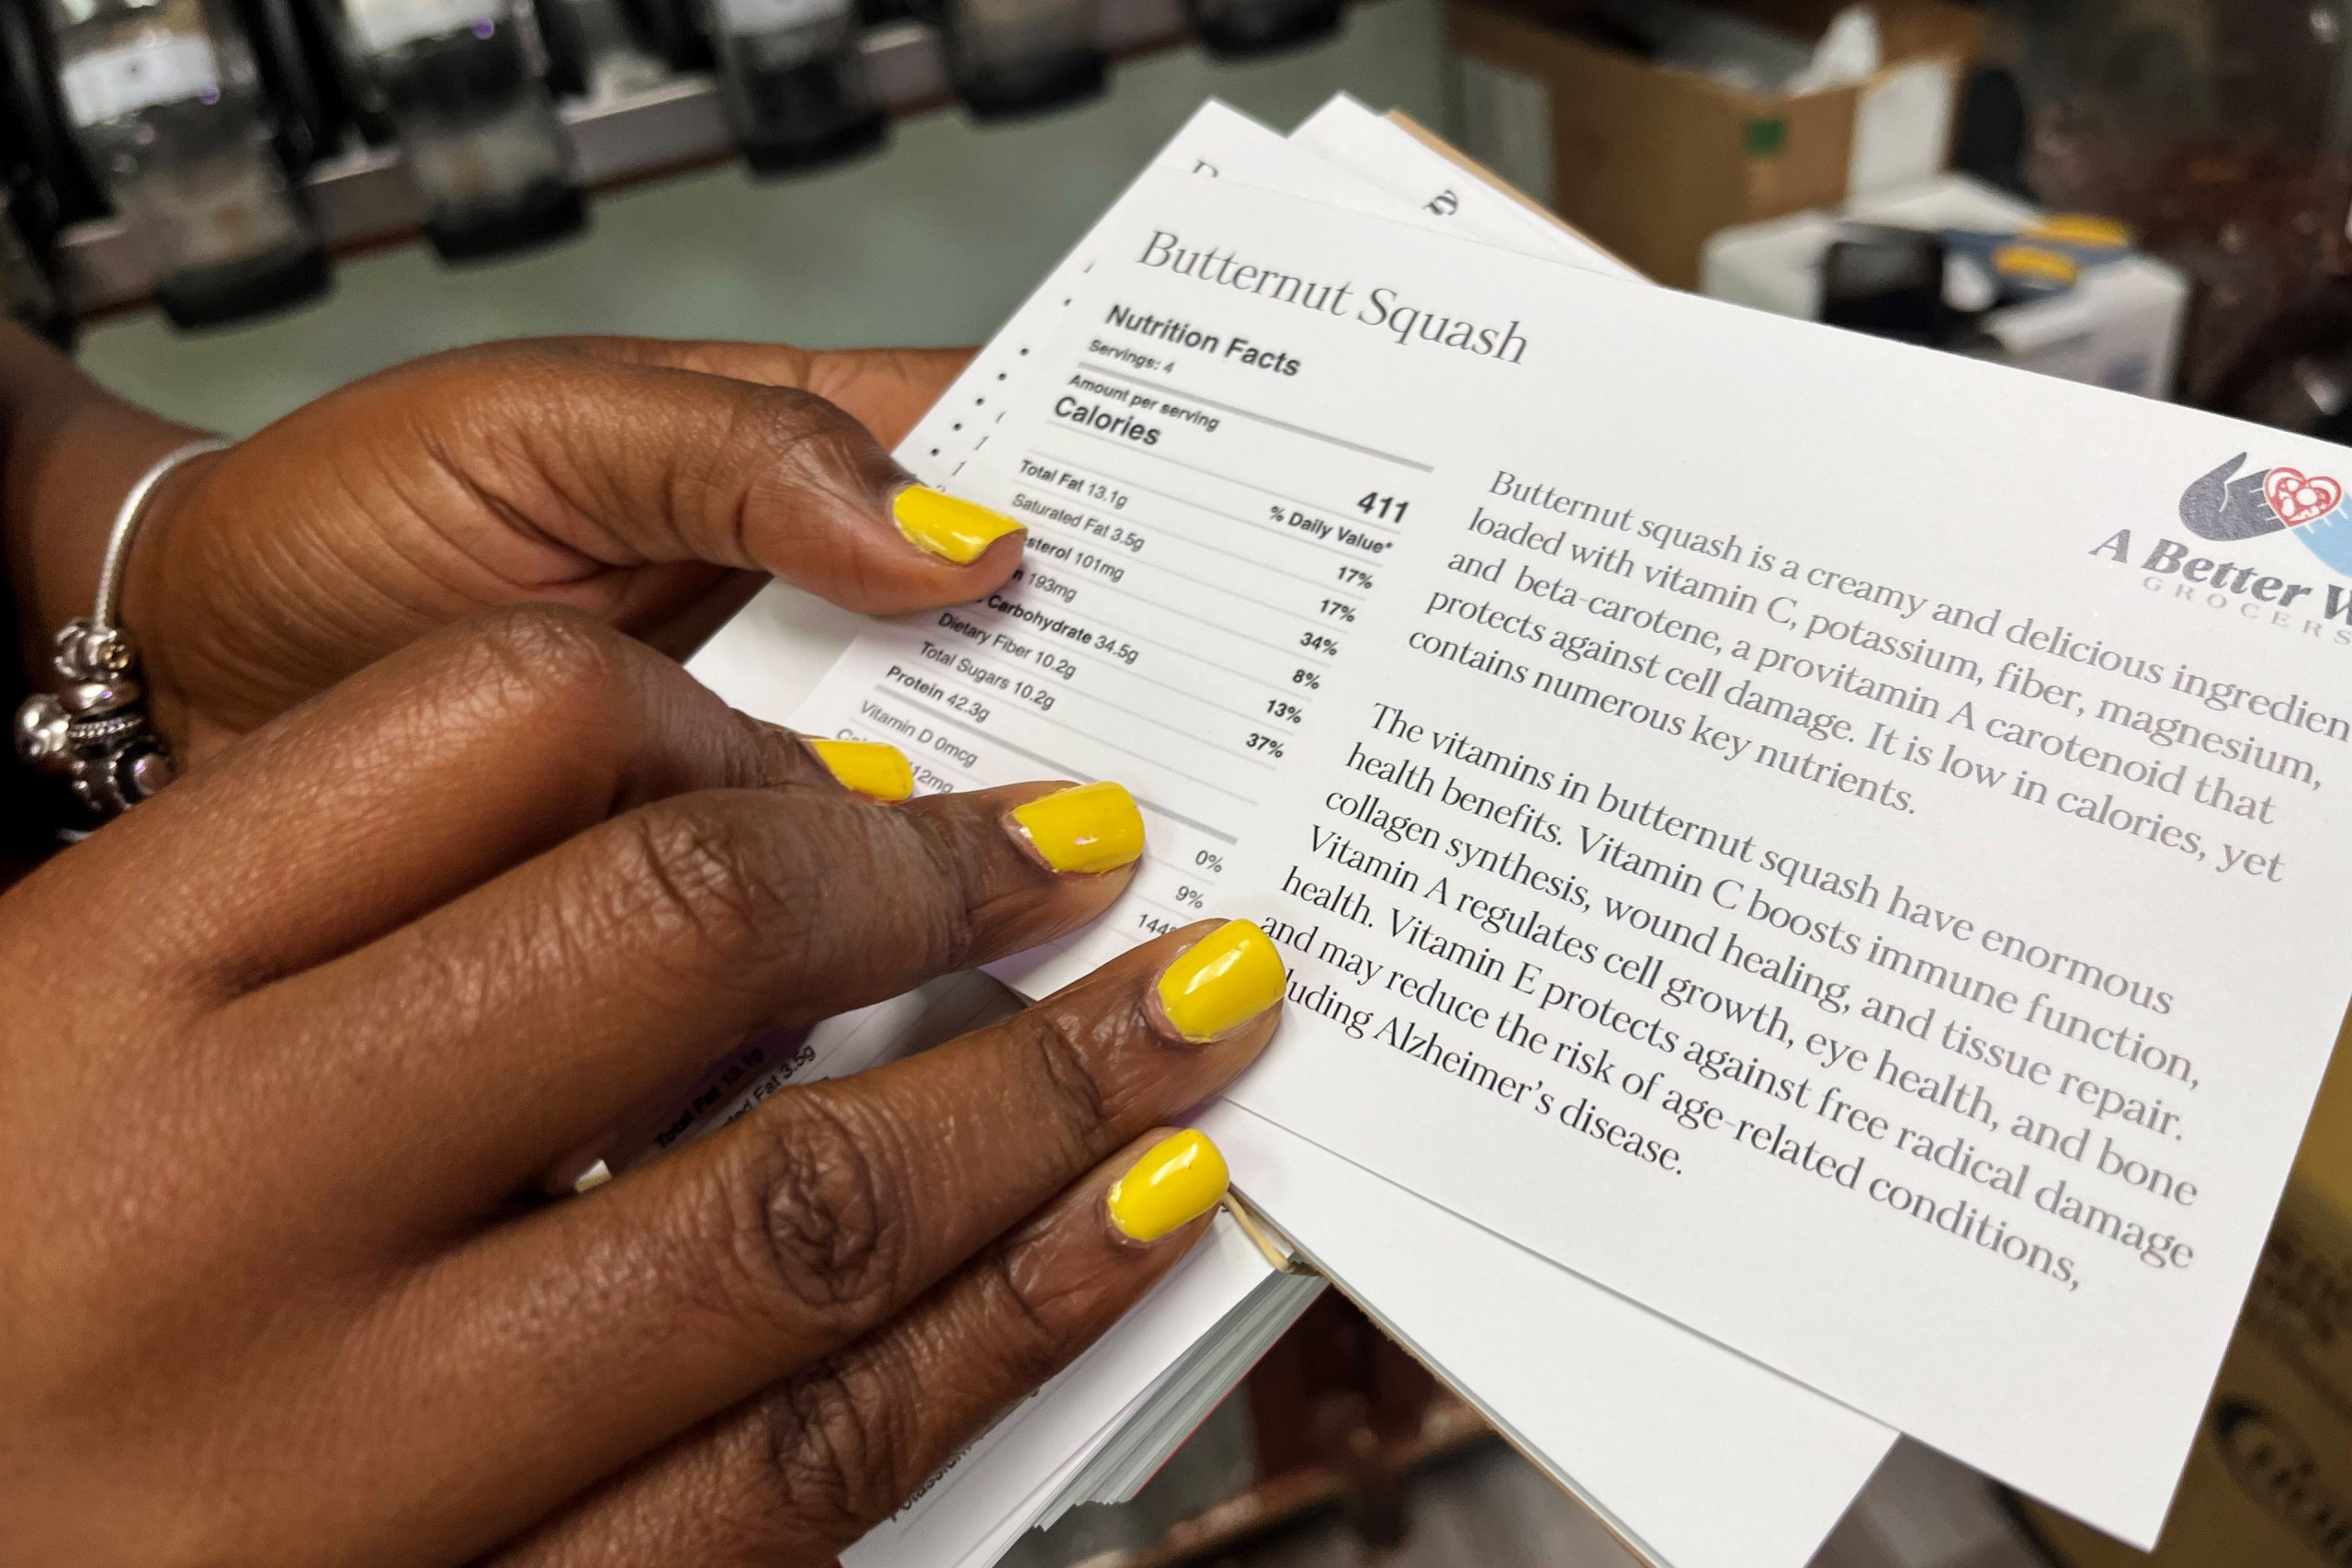 Butternut Squash
Nutrition Facts
Servings: 4
Amount per serving
Calories
411
% Daily Value*
Total Fat 13.1g 17%
Saturated Fat 3.5g 17%
sterol 101mg 34%
n 193mg 8%
Carbohydrate 34.5g 13%
Dietary Fiber 10.2g 37%
Total Sugars 10.2g
Protein 42.3g
Vitamin D 0mcg 0%
12mg 9%
144
A Better W
GROCERS
Butternut squash is a creamy and delicious ingredien
loaded with vitamin C, potassium, fiber, magnesium,
and beta-carotene, a provitamin A carotenoid that
protects against cell damage. It is low in calories, yet
contains numerous key nutrients.
The vitamins in butternut squash have enormous
health benefits. Vitamin C boosts immune function,
collagen synthesis, wound healing, and tissue repair.
Vitamin A regulates cell growth, eye health, and bone
health. Vitamin E protects against free radical damage
and may reduce the risk of age-related conditions,
luding Alzheimer's disease.
Total Fat 13.1g
ted Fat 3.5g